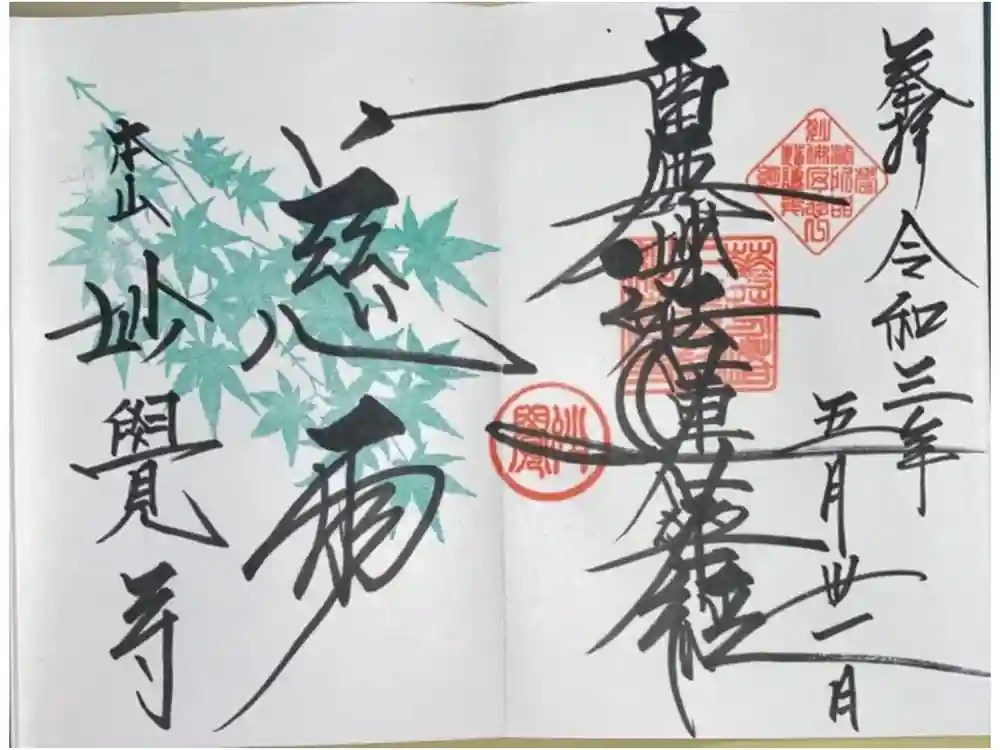 奉拝 令和三年
五月卅一日
南無妙法蓮華經
慈雨
本山 妙覺寺